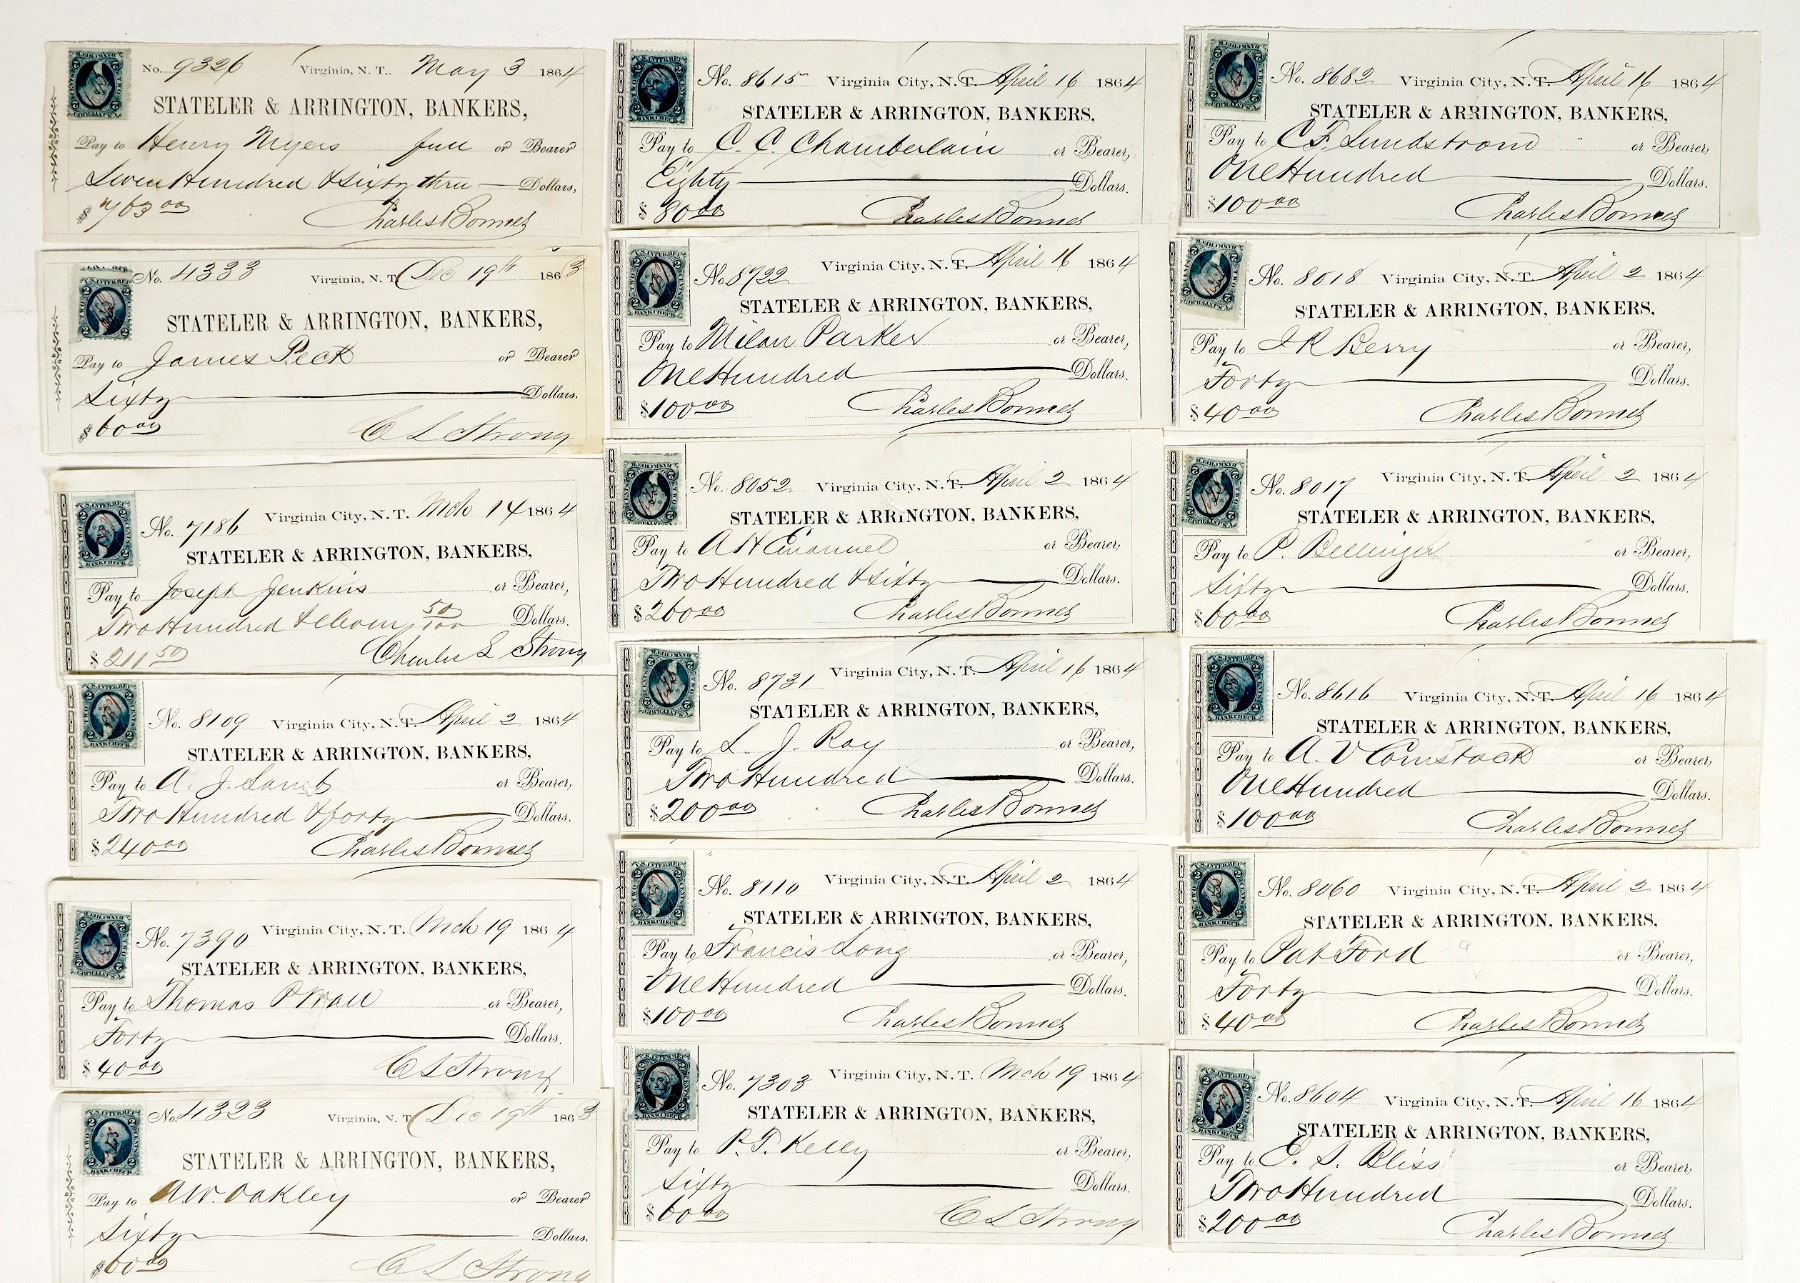 No. 9326 Virginia, N. T. May 3 1864
STATELER & ARRINGTON, BANKERS,
Pay to Henry Myers full or Bearer
Seven Hundred & Sixty three Dollars,
$763 00 Charles Bonner
No. 4333 Virginia, N. T. Dec 19th 1863
STATELER & ARRINGTON, BANKERS,
Pay to James Peck or Bearer
Sixty Dollars.
$60 00 C L Strong
No. 7186 Virginia City, N.T. Mch 14 1864
STATELER & ARRINGTON, BANKERS,
Pay to Joseph Jenkins or Bearer,
Two Hundred & eleven 50/100 Dollars.
$211 50 Charles L Strong
No. 8109 Virginia City, N.T. April 2 1864
STATELER & ARRINGTON, BANKERS,
Pay to A. J. or Bearer,
Two Hundred & forty Dollars.
$240 00 Charles Bonner
No. 7390 Virginia City, N.T. Mch 19 1864
STATELER & ARRINGTON, BANKERS,
Pay to Thomas P Wall or Bearer,
Forty Dollars.
$40 00 C L Strong
No. 4323 Virginia, N. T. Dec 19th 1863
STATELER & ARRINGTON, BANKERS,
Pay to A.W. Oakley or Bearer
Sixty Dollars.
$60 00 C L Strong
No. 8615 Virginia City, N.T. April 16 1864
STATELER & ARRINGTON, BANKERS,
Pay to C. C. Chamberlain or Bearer,
Eighty Dollars.
$80 00 Charles Bonner
No. 8722 Virginia City, N.T. April 16 1864
STATELER & ARRINGTON, BANKERS,
Pay to Milan Parker or Bearer,
One Hundred Dollars.
$100 00 Charles Bonner
No. 8052 Virginia City, N.T. April 2 1864
STATELER & ARRINGTON, BANKERS,
Pay to A H Emanuel or Bearer,
Two Hundred & Sixty Dollars.
$260 00 Charles Bonner
No. 8731 Virginia City, N.T. April 16 1864
STATELER & ARRINGTON, BANKERS,
Pay to L. J. Ray or Bearer,
Two Hundred Dollars.
$200 00 Charles Bonner
No. 8110 Virginia City, N.T. April 2 1864
STATELER & ARRINGTON, BANKERS,
Pay to Francis Long or Bearer,
One Hundred Dollars.
$100 00 Charles Bonner
No. 7303 Virginia City, N.T. Mch 19 1864
STATELER & ARRINGTON, BANKERS,
Pay to P. T. Kelly or Bearer,
Sixty Dollars.
$60 00 C L Strong
No. 8682 Virginia City, N.T. April 16 1864
STATELER & ARRINGTON, BANKERS,
Pay to C F. Lundstrom or Bearer,
One Hundred Dollars.
$100 00 Charles Bonner
No. 8018 Virginia City, N.T. April 2 1864
STATELER & ARRINGTON, BANKERS,
Pay to J R Berry or Bearer,
Forty Dollars.
$40 00 Charles Bonner
No. 8017 Virginia City, N.T. April 2 1864
STATELER & ARRINGTON, BANKERS,
Pay to P. Bellinger or Bearer,
Sixty Dollars.
$60 00 Charles Bonner
No. 8616 Virginia City, N.T. April 16 1864
STATELER & ARRINGTON, BANKERS,
Pay to A. V Comstock or Bearer,
One Hundred Dollars.
$100 00 Charles Bonner
No. 8060 Virginia City, N.T. April 2 1864
STATELER & ARRINGTON, BANKERS,
Pay to Pat Ford or Bearer,
Forty Dollars.
$40 00 Charles Bonner
No. 8604 Virginia City, N.T. April 16 1864
STATELER & ARRINGTON, BANKERS,
Pay to E. S. Bliss or Bearer,
Two Hundred Dollars.
$200 00 Charles Bonner